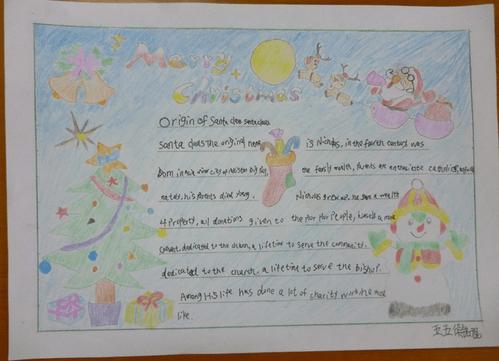 Merry
Christmas
Origin of Santa
Santa claus the original name is Nicholas, in the fourth century was
Born in Asia minor city of big fish, the family wealth, Parents are catholics,
eater, his Parents died young. Nicholas grew me, he a wealth
of Property, all donations given to the Poor Poor People, himself a more
convert, dedicated to the church, a lifetime to serve the community.
dedicated to the church, a lifetime to serve the bishop.
Among His life has done a lot of charity working most
like.
五五